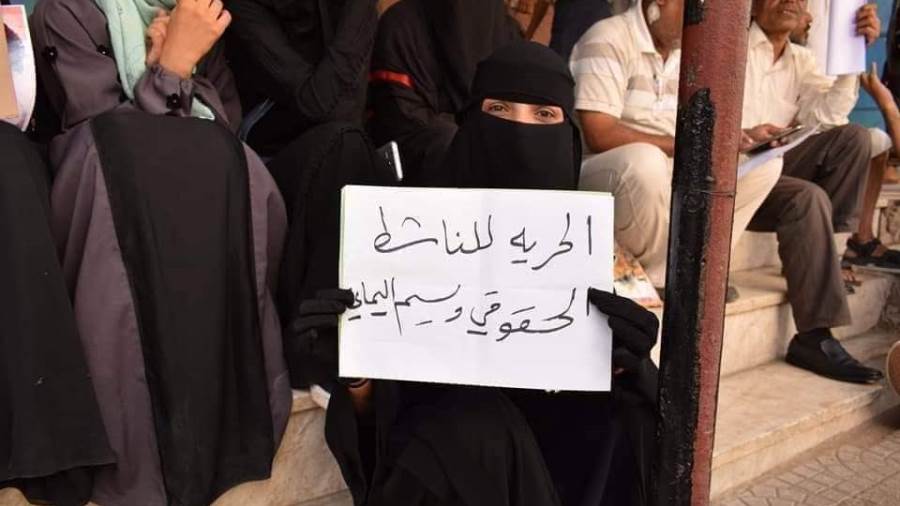 الحريه للناشط
الحقوقي وسيم اليماني